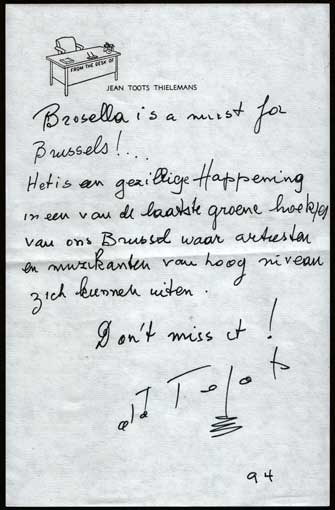 FROM THE DESK OF
JEAN TOOTS THIELEMANS
Brosella is a must for
Brussels!...
Het is een gezellige Happening
in een van de laatste groene hoekjes
van ons Brussel waar artiesten
en muzikanten van hoog niveau
zich kunnen uiten.
Don't miss it!
94